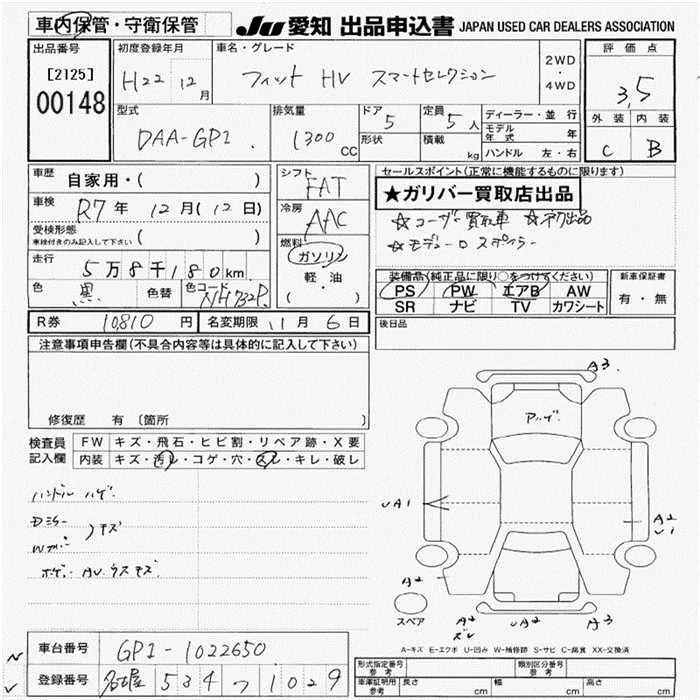 車内保管・守衛保管
JU 愛知 出品申込書 JAPAN USED CAR DEALERS ASSOCIATION
出品番号 初度登録年月 車名・グレード 2WD・4WD 評価点
[2125] H22 12月 フィット HV スマートセレクション 3.5
00148
型式 排気量 ドア 定員 ディーラー・並行 外装 内装
DAA-GP1 1300cc 5 5人 モデル年式 年 C B
形状 積載 kg ハンドル 左・右
車歴 自家用・( ) シフト FAT セールスポイント(正常に機能するものに限ります)
★ガリバー買取店出品
車検 R7年 12月(12日) 冷房 AAC ☆ユーザー買取車 ☆初出品
受検形態 車検付きのみ記入して下さい ( ) 燃料 ☆モデューロ スポイラー
走行 5万8千180km ガソリン 軽・油 ( )
装備品(純正品に限り○をつけてください) 新車保証書
色 黒 色替 色コード NH782P PS PW エアB AW 有・無
SR ナビ TV カワシート
R券 10810円 名変期限 11月6日 後日品
注意事項申告欄(不具合内容等は具体的に記入して下さい)
修復歴 有 〔箇所 〕
検査員記入欄 FW キズ・飛石・ヒビ割・リペア跡・X要
内装 キズ・汚レ・コゲ・穴・スレ・キレ・破レ
ハンドル ハゲ
Dミラー
キズ
ボデー AU ウスキズ
A3
アルゲ
UA1
A2
U1
A2
スペア A2 スレ UA2 A3
A-キズ E-エクボ U-凹み W-補修跡 S-サビ C-腐食 XX-交換済
車台番号 GP1-1022650
登録番号 名古屋 534 つ 1029
形式指定番号 参考 類別区分番号 参考
車庫証明用 参考 長さ cm 幅 cm 高さ cm